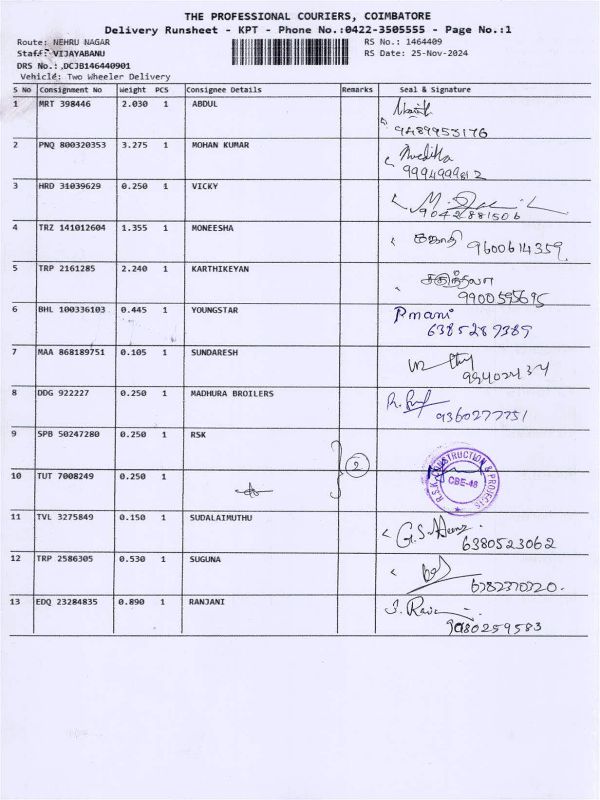 THE PROFESSIONAL COURIERS, COIMBATORE
Delivery Runsheet - KPT - Phone No.:0422-3505555 - Page No.:1
Route: NEHRU NAGAR RS No.: 1464409
Staff: VIJAYABANU RS Date: 25-Nov-2024
DRS No.: ,DCJB146440901
Vehicle: Two Wheeler Delivery
S No Consignment No Weight PCS Consignee Details Remarks Seal & Signature
1 MRT 398446 2.030 1 ABDUL
9489953176
2 PNQ 800320353 3.275 1 MOHAN KUMAR
9994999812
3 HRD 31039629 0.250 1 VICKY
9042881506
4 TRZ 141012604 1.355 1 MONEESHA 9600614359
5 TRP 2161285 2.240 1 KARTHIKEYAN
9900595695
6 BHL 100336103 0.445 1 YOUNGSTAR Pmani
6385289389
7 MAA 868189751 0.105 1 SUNDARESH
8 DDG 922227 0.250 1 MADHURA BROILERS
9360277751
9 SPB 50247280 0.250 1 RSK
2
R.S.K. CONSTRUCTION & PROJECTS
CBE-48
10 TUT 7008249 0.250 1
11 TVL 3275849 0.150 1 SUDALAIMUTHU
6380523062
12 TRP 2586305 0.530 1 SUGUNA
6782370720.
13 EDQ 23284835 0.890 1 RANJANI
9080259583